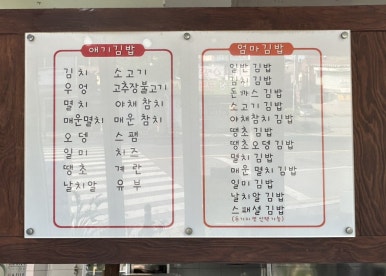 애기김밥
김치 소고기
우엉 고추장불고기
멸치 야채 참치
매운멸치 매운 참치
오뎅 스팸
일미 치즈
땡초 계란
날치알 유부
엄마김밥
일반 김밥
김치 김밥
돈까스 김밥
소고기 김밥
야채참치 김밥
땡초 김밥
땡초오뎅 김밥
멸치 김밥
매운 멸치 김밥
일미 김밥
날치알 김밥
스페셜 김밥